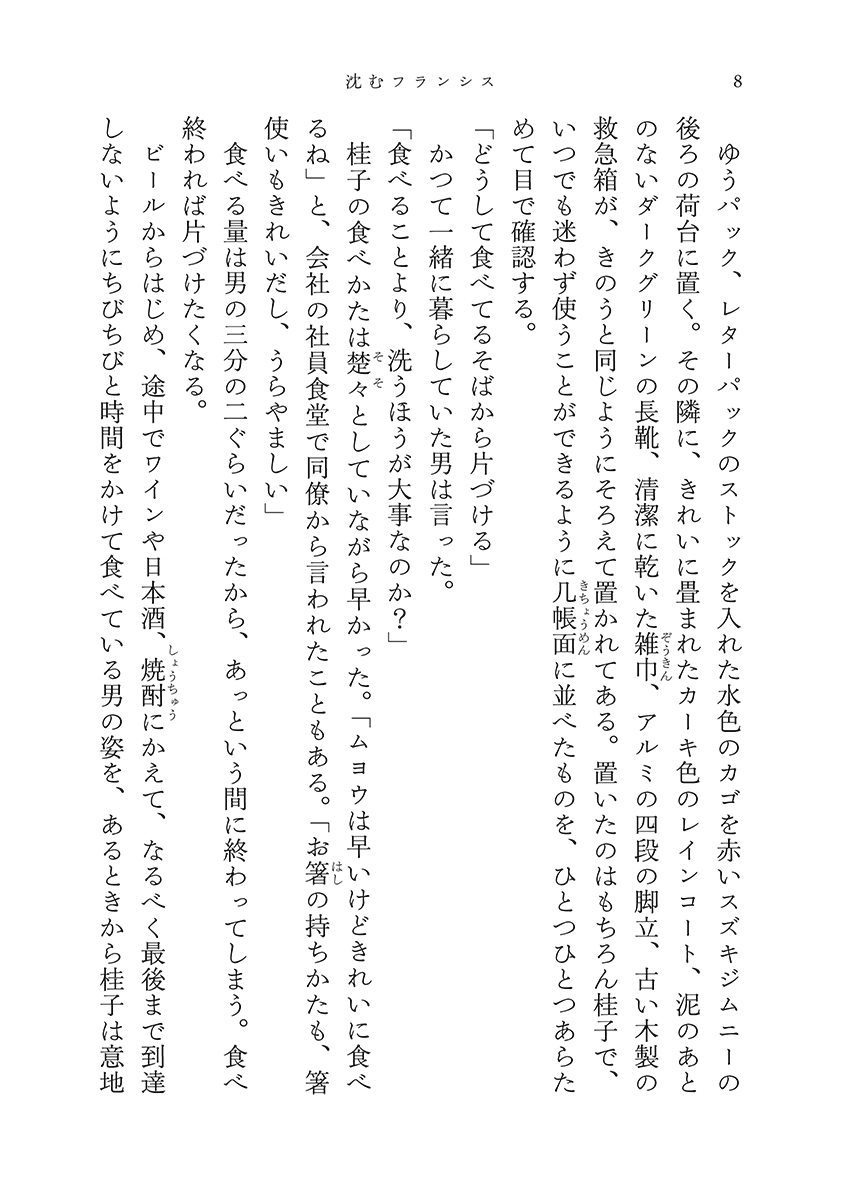 沈むフランシス
8
ゆうパック、レターパックのストックを入れた水色のカゴを赤いスズキジムニーの
後ろの荷台に置く。その隣に、きれいに畳まれたカーキ色のレインコート、泥のあと
のないダークグリーンの長靴、清潔に乾いた雑巾、アルミの四段の脚立、古い木製の
救急箱が、きのうと同じようにそろえて置かれてある。置いたのはもちろん桂子で、
いつでも迷わず使うことができるように几帳面に並べたものを、ひとつひとつあらた
めて目で確認する。
「どうして食べてるそばから片づける」
かつて一緒に暮らしていた男は言った。
「食べることより、洗うほうが大事なのか?」
桂子の食べかたは楚々としていながら早かった。「ムヨウは早いけどきれいに食べ
るね」と、会社の社員食堂で同僚から言われたこともある。「お箸の持ちかたも、箸
使いもきれいだし、うらやましい」
食べる量は男の三分の二ぐらいだったから、あっという間に終わってしまう。食べ
終われば片づけたくなる。
ビールからはじめ、途中でワインや日本酒、焼酎にかえて、なるべく最後まで到達
しないようにちびちびと時間をかけて食べている男の姿を、あるときから桂子は意地